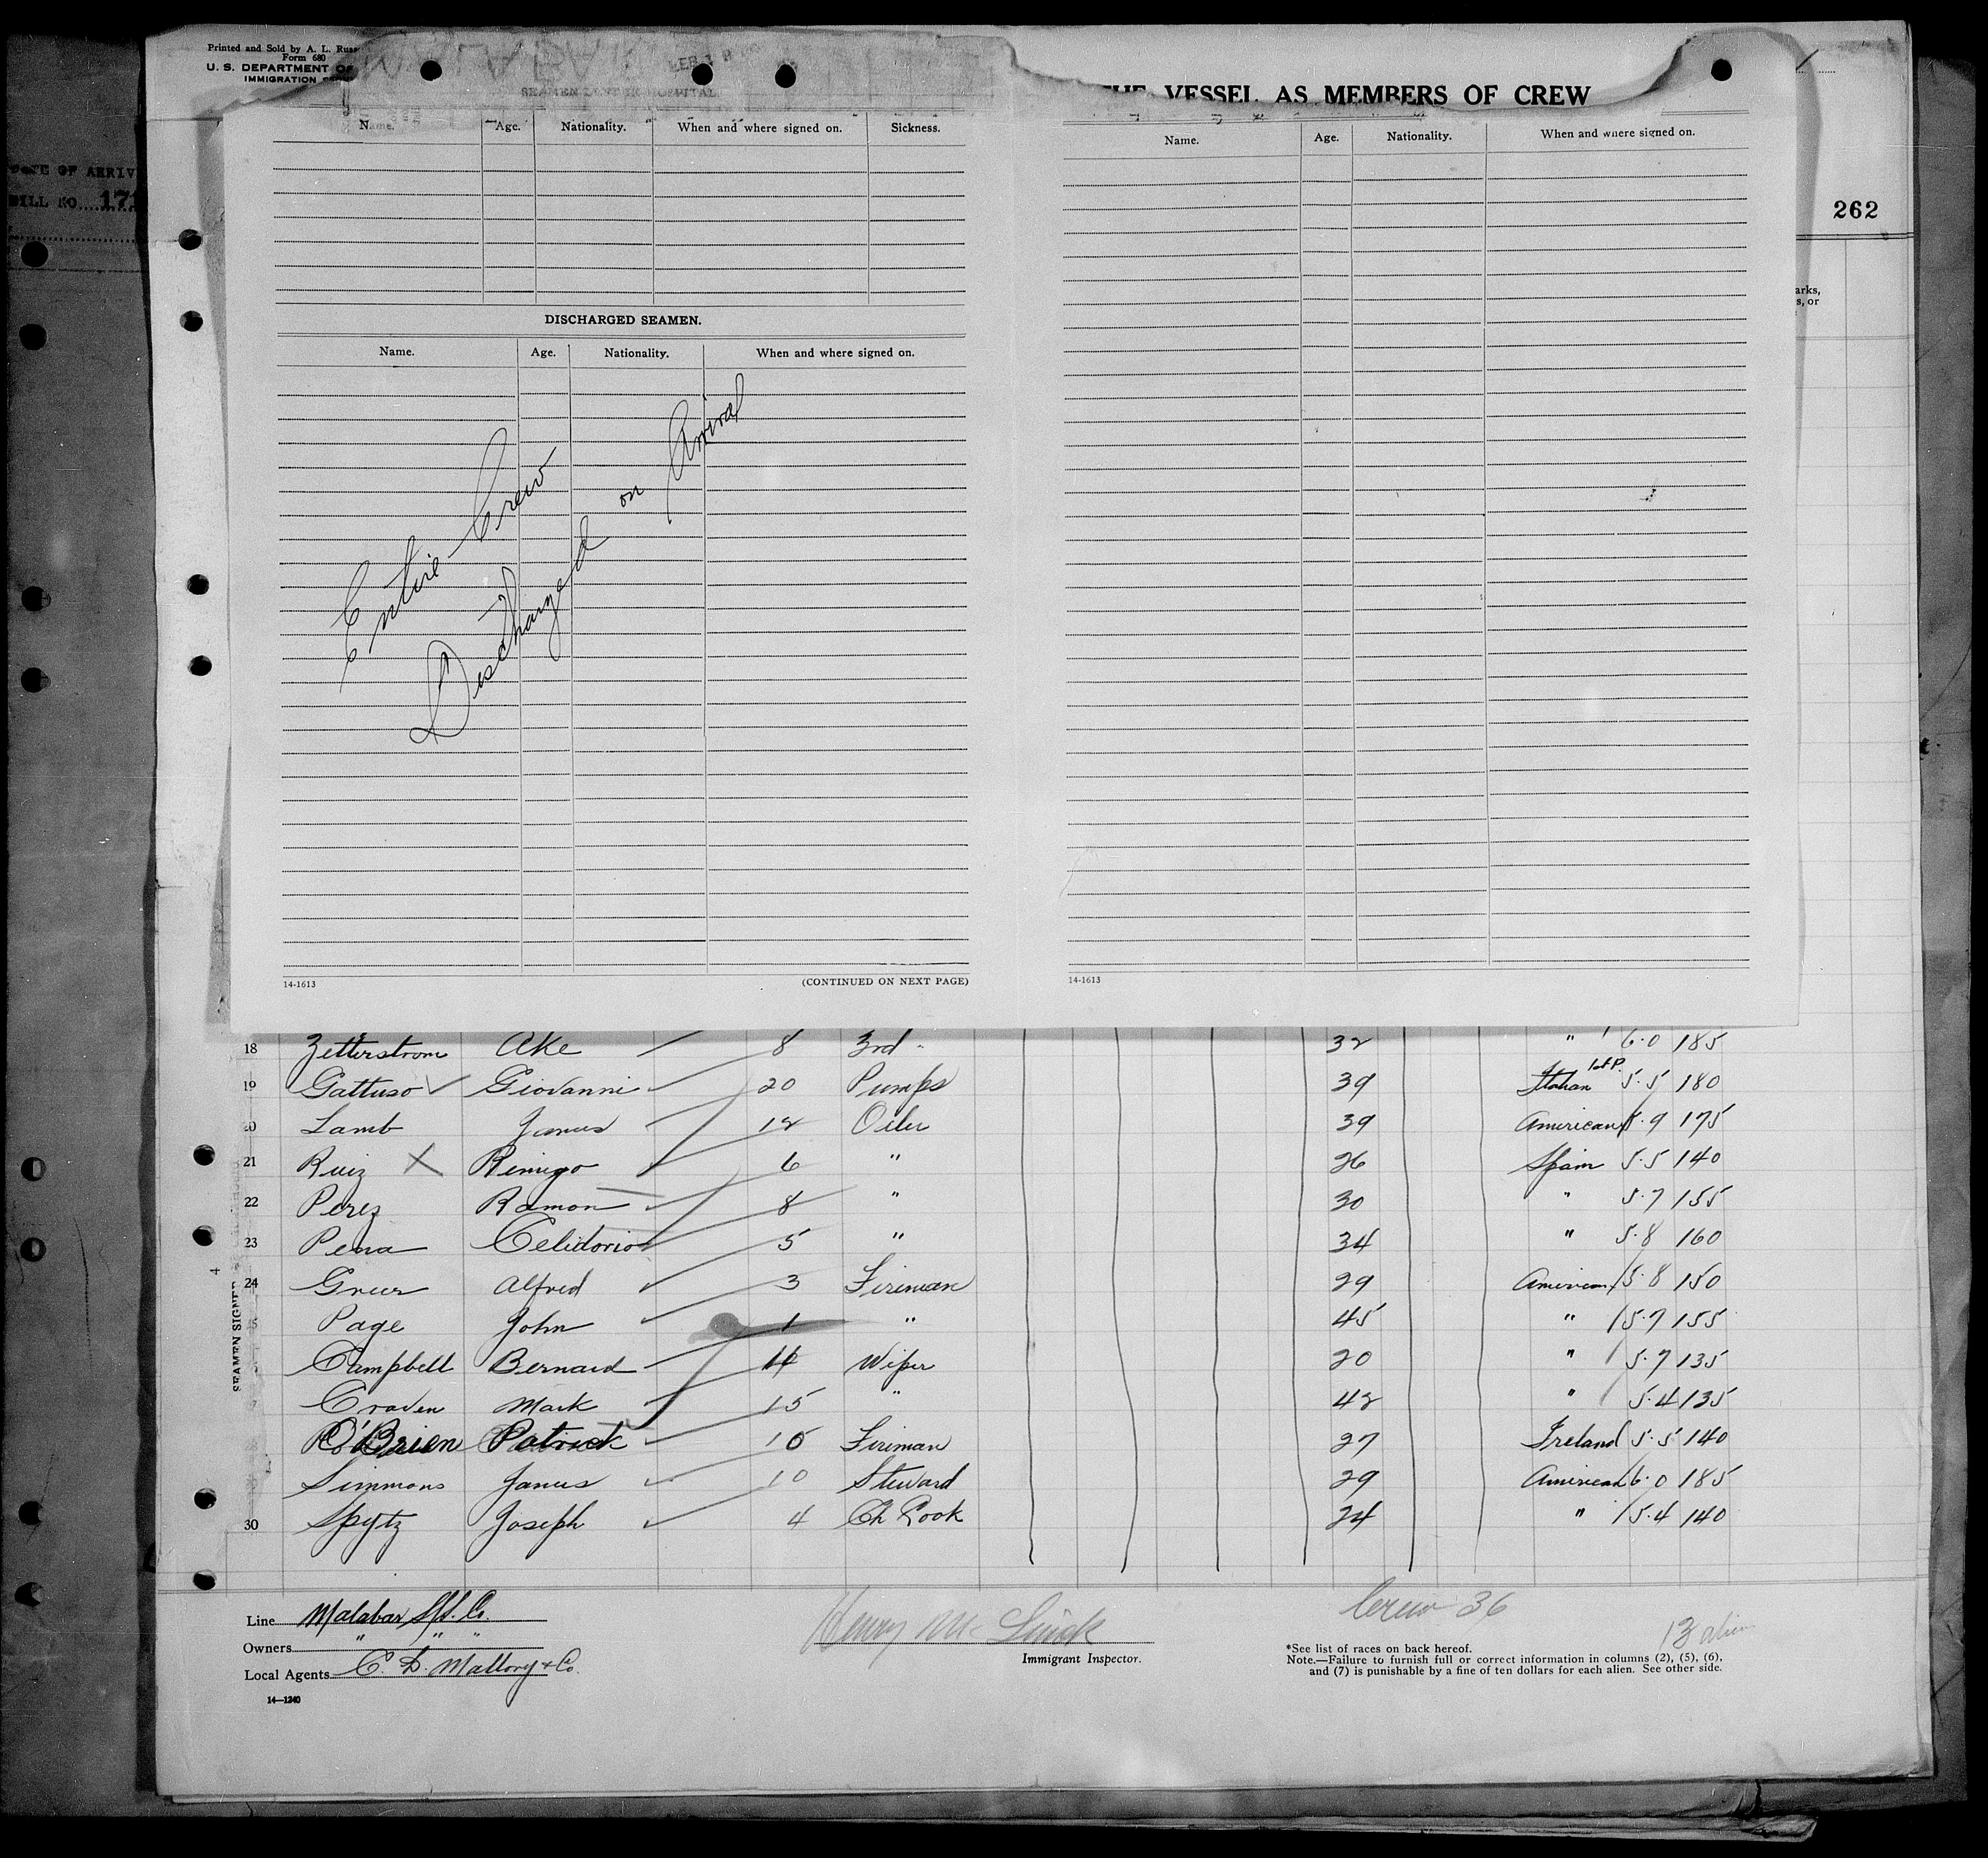 Printed and Sold by A. L.
Form 680
U. S. DEPARTMENT OF
IMMIGRATION
FEB
SEAMEN HOSPITAL
THE VESSEL AS MEMBERS OF CREW
Name. Age. Nationality. When and where signed on. Sickness.
Name. Age. Nationality. When and where signed on.
DATE OF ARRIV
BILL NO. 171
262
arks,
s, or
DISCHARGED SEAMEN.
Name. Age. Nationality. When and where signed on.
Entire Crew
Discharged on Arrival
14-1613 (CONTINUED ON NEXT PAGE) 14-1613
18 Zetterstrom Ake 8 3rd 32 " 6.0 185
19 Gattuso Giovanni 20 Pumps 39 Italian 1st P. 5.5 180
20 Lamb James 12 Oiler 39 American 5.9 175
21 Ruiz X Remigo 6 " 26 Spain 5.5 140
22 Perez Ramon 8 " 30 " 5.7 155
23 Pena Celidorio 5 " 34 " 5.8 160
24 Greer Alfred 3 Fireman 29 American 5.8 150
25 Page John 1 " 45 " 5.7 155
Campbell Bernard 4 Wiper 20 " 5.7 135
Craven Mark 15 " 42 " 5.4 135
O'Brien Patrick 10 Fireman 27 Ireland 5.5 140
Simmons James 10 Steward 29 American 6.0 185
30 Spytz Joseph 4 Ch Cook 24 " 5.4 140
SEAMEN SIGNED
Line Malabar S/S. Co.
Owners " " "
Local Agents C. D. Mallory & Co.
14—1240
Henry Mc
Immigrant Inspector.
Crew 36
13 alien
*See list of races on back hereof.
Note.—Failure to furnish full or correct information in columns (2), (5), (6),
and (7) is punishable by a fine of ten dollars for each alien. See other side.